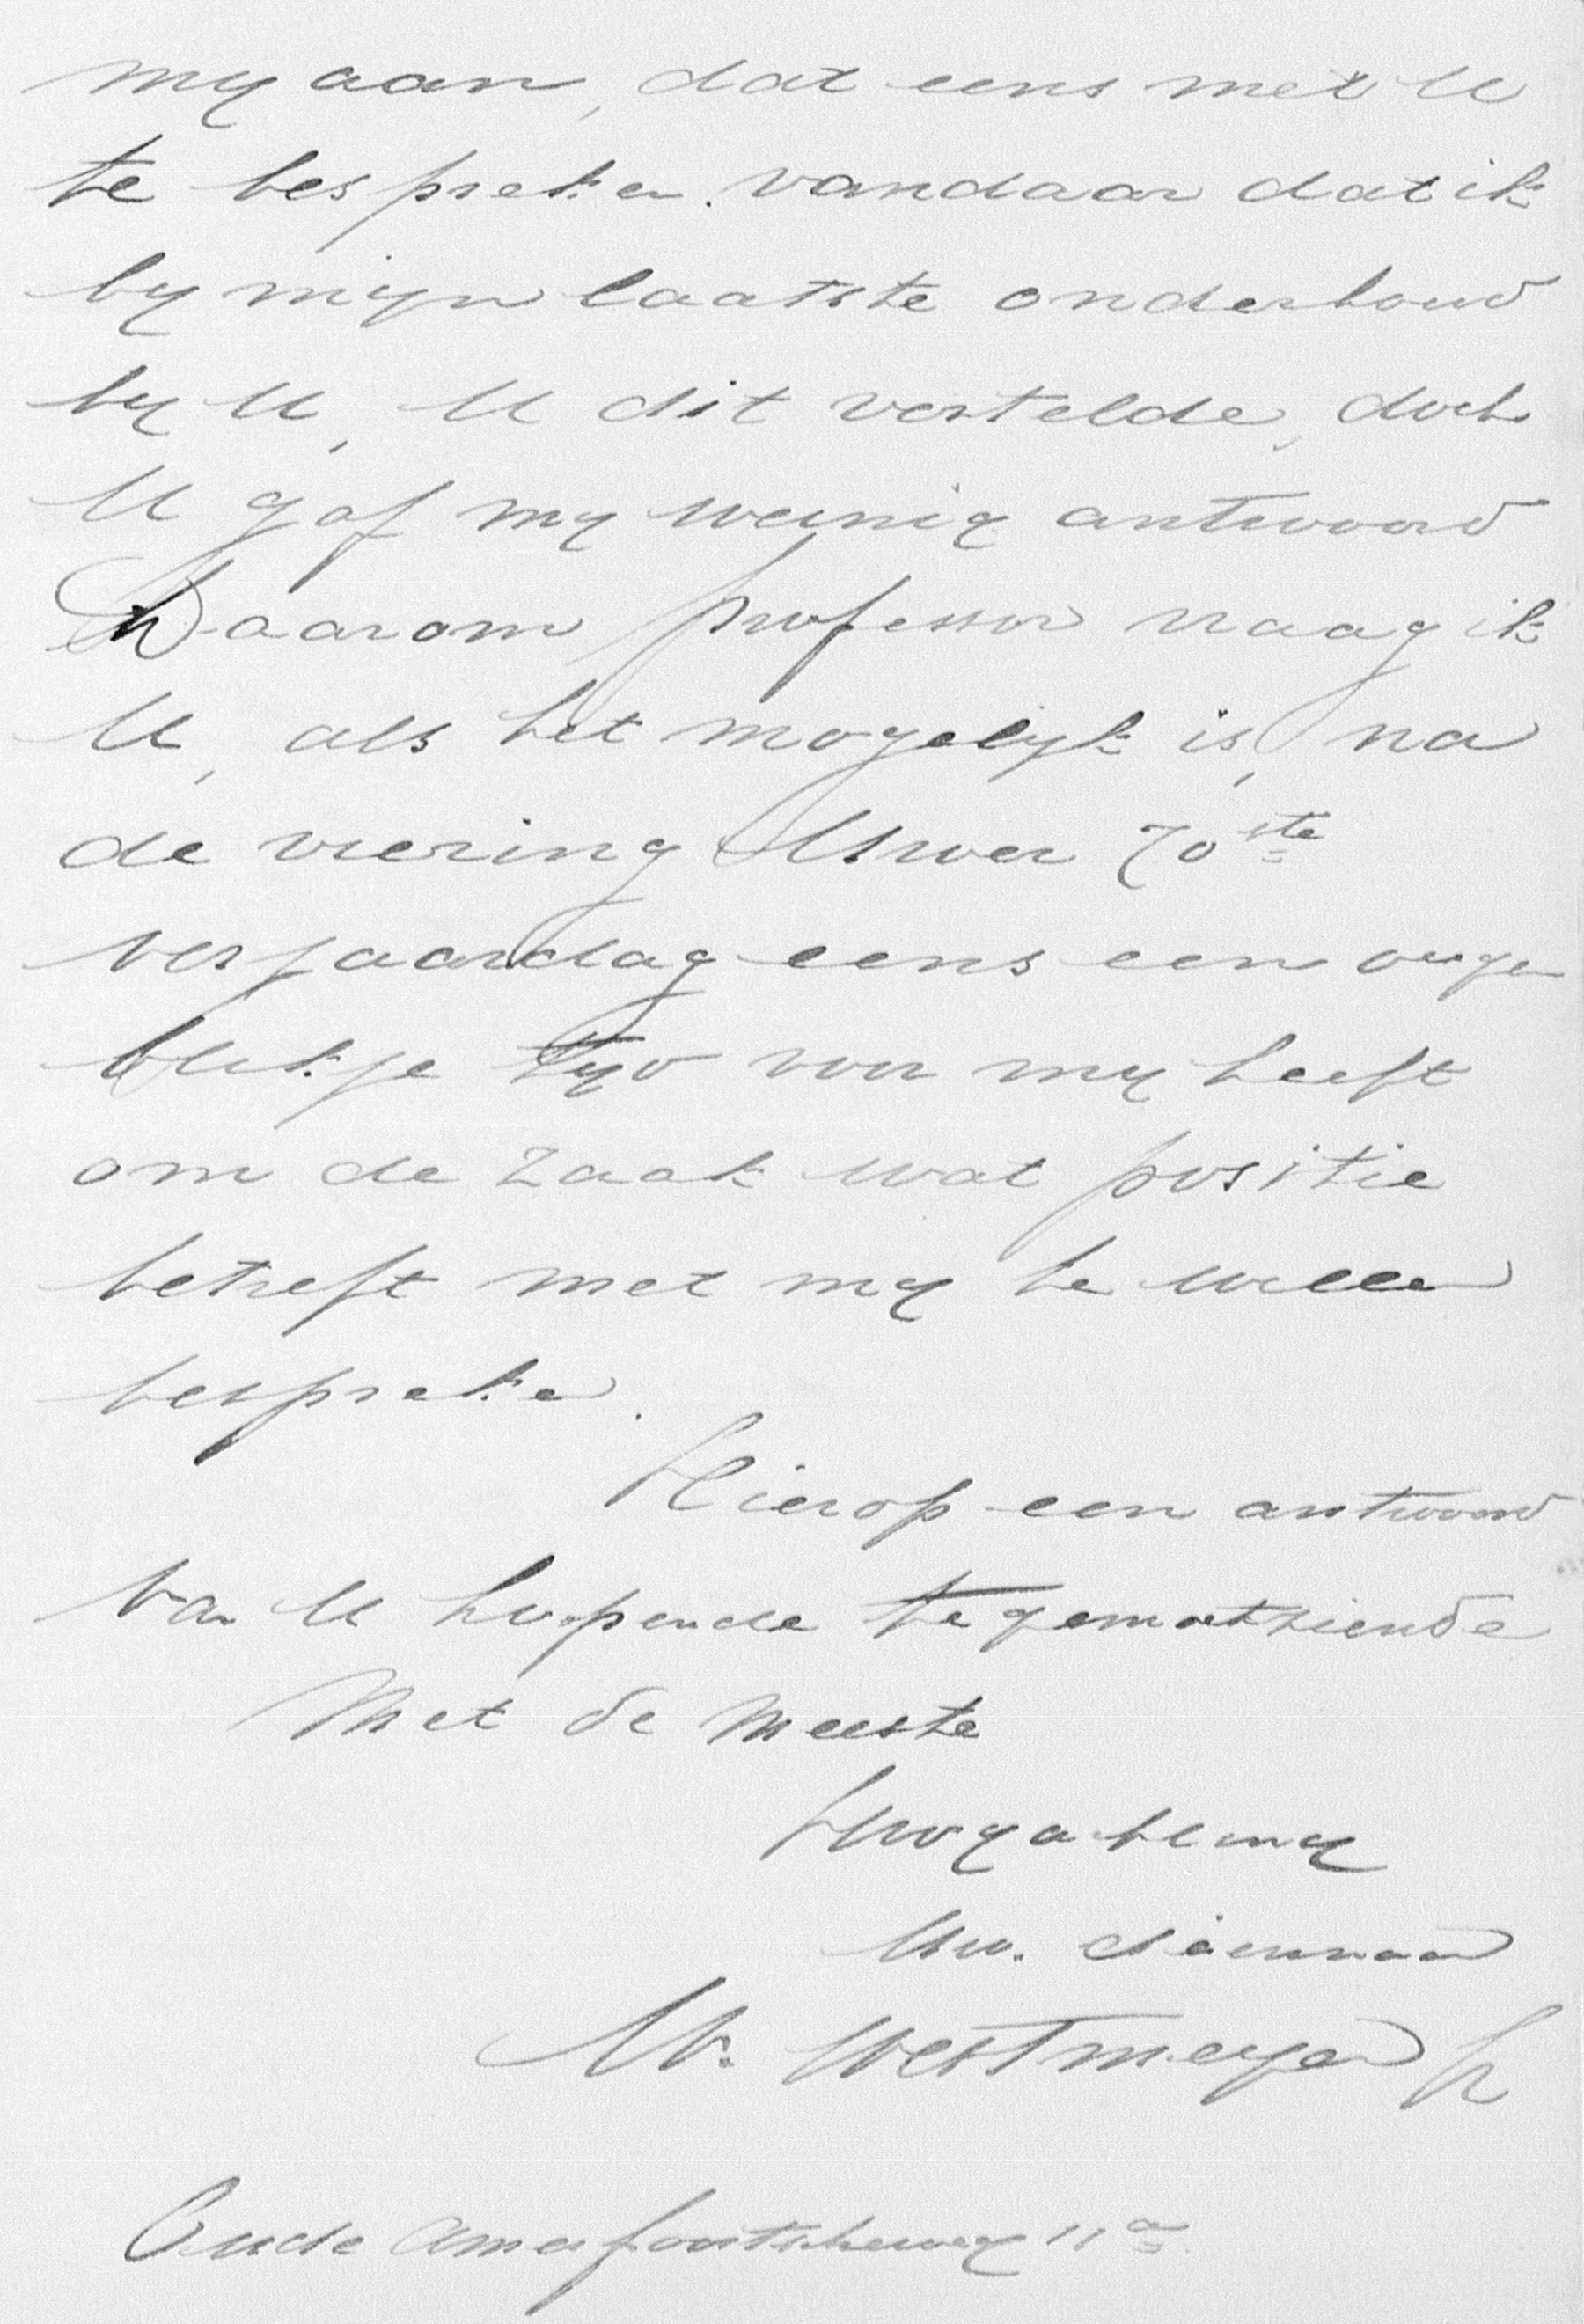 my aan, dat eens met U
te bespreken. vandaar dat ik
by mijn laatste onderhoud
by U, U dit vertelde, doch
U gaf my weinig antwoord
Daarom professor vraag ik
U, als het mogelyk is, na
de viering Uwer 70ste
verjaardag eens een oogen
blikje tyd voor my heeft
om de zaak wat positie
betreft met my te willen
bespreken.
Hierop een antwoord
van U hopende tegemoetziende
Met de Meeste
Hoogachting
Uw. dienaar
W. Westmeyer
Oude Amersfoortscheweg 11a